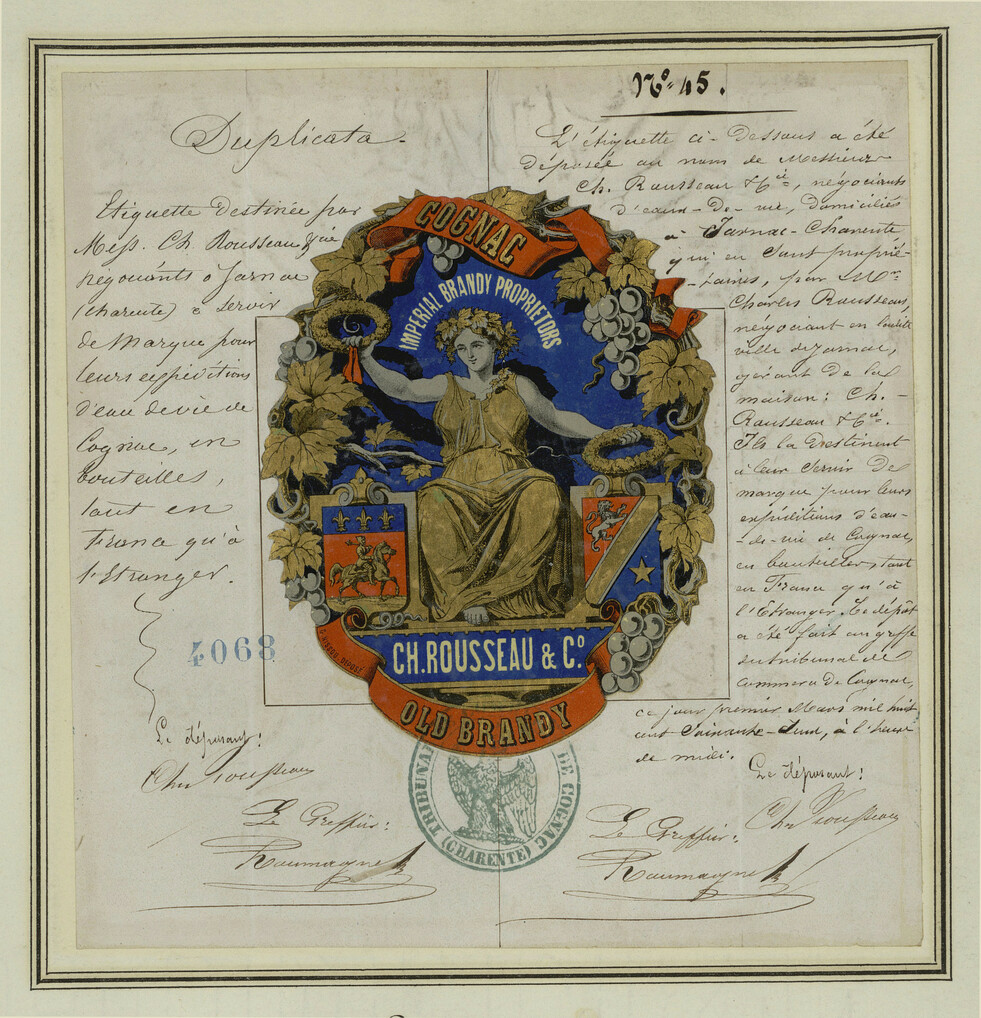 Nº 45.
Duplicata.
Etiquette destinée par
Mess. Ch. Rousseau & Cie
négociants à Jarnac
(charente) à servir
de marque pour
leurs expéditions
d'eau de vie de
Cognac, en
bouteilles,
tant en
France qu'à
l'Etranger.
4068
Le déposant:
Chs Rousseau
Le Greffier:
Roumagne
L'étiquette ci-dessous a été
déposée au nom de Messieurs
Ch. Rousseau & Cie, négociants
d'eaux-de-vie, domiciliés
à Jarnac-Charente,
qui en sont proprié-
-taires, par Mr
Charles Rousseau,
négociant en ladite
ville de Jarnac,
gérant de la
maison: Ch. -
Rousseau & Cie.
Ils la destinent
à leur servir de
marque pour leurs
expéditions d'eau-
-de-vie de Cognac,
en bouteilles, tant
en France qu'à
l'Etranger. Le dépôt
a été fait au greffe
du tribunal de
commerce de Cognac,
ce jour premier Mars mil huit
cent soixante-deux, à l'heure
de midi.
Le déposant:
Chs Rousseau
Le Greffier:
Roumagne
COGNAC
IMPERIAL BRANDY PROPRIETORS
CH. ROUSSEAU & Co
OLD BRANDY
TRIBUNAL DE COGNAC
(CHARENTE)